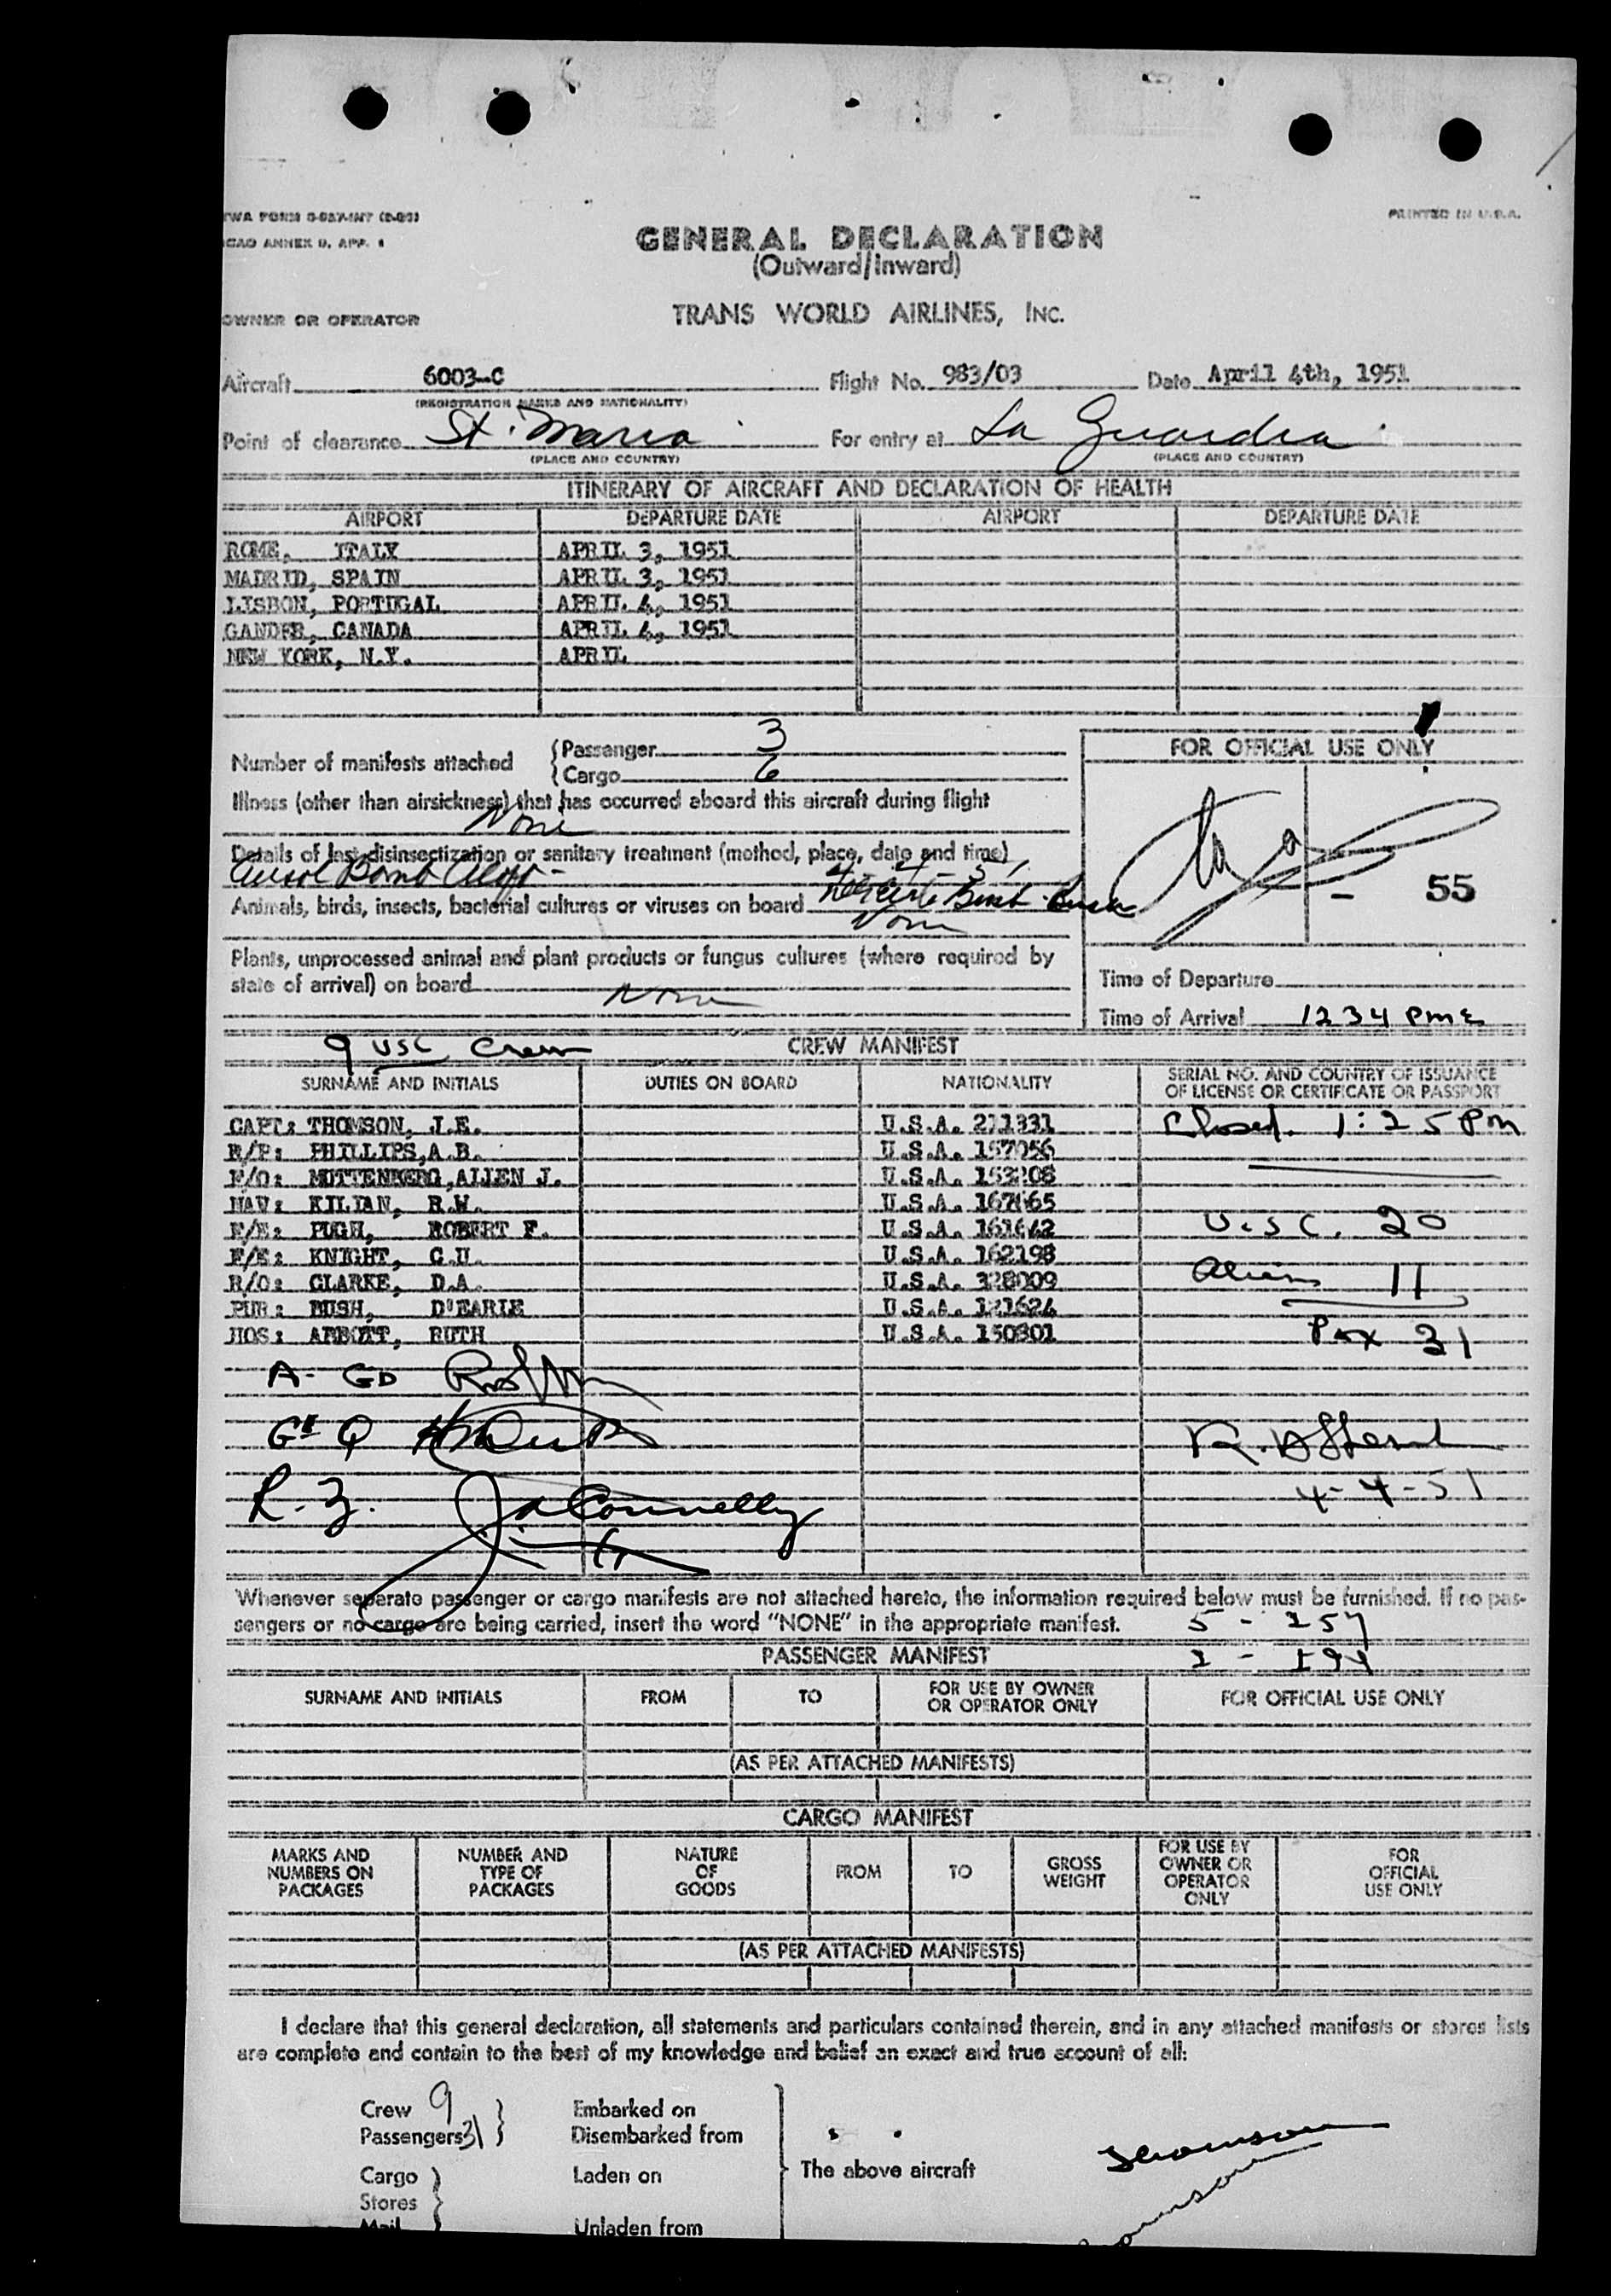 TWA FORM
ICAO ANNEX 9, APP. 1
PRINTED IN U.S.A.
GENERAL DECLARATION
(Outward/Inward)
OWNER OR OPERATOR
TRANS WORLD AIRLINES, INC.
Aircraft 6003-C Flight No. 983/03 Date April 4th, 1951
(REGISTRATION MARKS AND NATIONALITY)
Point of clearance St. Maria For entry at La Guardia
(PLACE AND COUNTRY) (PLACE AND COUNTRY)
ITINERARY OF AIRCRAFT AND DECLARATION OF HEALTH
AIRPORT DEPARTURE DATE AIRPORT DEPARTURE DATE
ROME, ITALY APRIL 3, 1951
MADRID, SPAIN APRIL 3, 1951
LISBON, PORTUGAL APRIL 4, 1951
GANDER, CANADA APRIL 4, 1951
NEW YORK, N.Y. APRIL
Number of manifests attached
Passenger 3
Cargo 6
FOR OFFICIAL USE ONLY
Illness (other than airsickness) that has occurred aboard this aircraft during flight
None
Details of last disinsectization or sanitary treatment (method, place, date and time)
Aerosol Bomb Aloft -
Animals, birds, insects, bacterial cultures or viruses on board
None
- 55
Plants, unprocessed animal and plant products or fungus cultures (where required by
state of arrival) on board None
Time of Departure
Time of Arrival 1234 PME
9 USC Crew CREW MANIFEST
SURNAME AND INITIALS DUTIES ON BOARD NATIONALITY SERIAL NO. AND COUNTRY OF ISSUANCE
OF LICENSE OR CERTIFICATE OR PASSPORT
CAPT: THOMSON, J.E. U.S.A. 211331 Closed. 1:25 PM
PHILLIPS, A.B. U.S.A. 157056
F/O: MUTTENBERG, ALLEN J. U.S.A. 153208
NAV: KILIAN, R.W. U.S.A. 167865
F/E: PUGH, ROBERT F. U.S.A. 161642 U.S.C. 20
F/E: KNIGHT, C.U. U.S.A. 162198
R/O: CLARKE, D.A. U.S.A. 328009 Aliens 11
PUR: BUSH, D'EARLE U.S.A. 121624
HOS: ABBOTT, RUTH U.S.A. 150801 Pax 31
A- GD
G Q
R.
L. Z. J A Connelly
4-4-51
Whenever separate passenger or cargo manifests are not attached hereto, the information required below must be furnished. If no pas-
sengers or no cargo are being carried, insert the word "NONE" in the appropriate manifest. 5 - 257
PASSENGER MANIFEST
SURNAME AND INITIALS FROM TO FOR USE BY OWNER
OR OPERATOR ONLY FOR OFFICIAL USE ONLY
(AS PER ATTACHED MANIFESTS)
CARGO MANIFEST
MARKS AND
NUMBERS ON
PACKAGES
NUMBER AND
TYPE OF
PACKAGES
NATURE
OF
GOODS
FROM
TO
GROSS
WEIGHT
FOR USE BY
OWNER OR
OPERATOR
ONLY
FOR
OFFICIAL
USE ONLY
(AS PER ATTACHED MANIFESTS)
I declare that this general declaration, all statements and particulars contained therein, and in any attached manifests or stores lists
are complete and contain to the best of my knowledge and belief an exact and true account of all:
Crew 9 Embarked on
Passengers 31 Disembarked from
Thomson
Cargo Laden on The above aircraft
Stores
Mail Unladen from